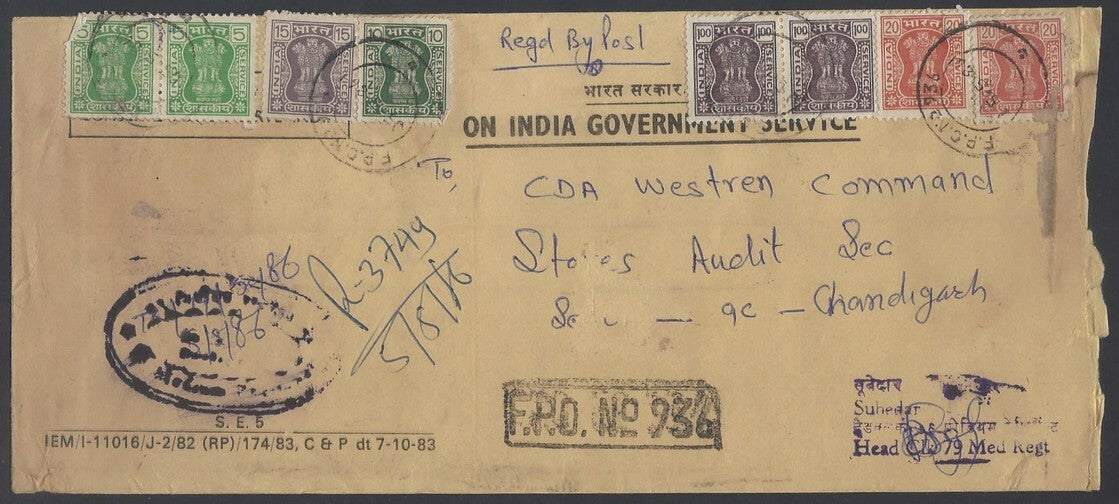 5 भारत 5 भारत 15 भारत 15 10 भारत 10 100 भारत 100 100 भारत 100 20 भारत 20 20 भारत 20
INDIA SERVICE INDIA SERVICE INDIA SERVICE INDIA SERVICE INDIA SERVICE INDIA SERVICE INDIA SERVICE INDIA SERVICE
शासकीय शासकीय शासकीय शासकीय शासकीय शासकीय शासकीय शासकीय
Regd By Post
भारत सरकार
ON INDIA GOVERNMENT SERVICE
F.P.O. No
F.P.O. No 936
To,
CDA Westren Command
Stores Audit Sec
Sec 9c - Chandigarh
R-3749
5/8/86
5/8/86
S. E. 5
IEM/I-11016/J-2/82 (RP)/174/83, C & P dt 7-10-83
F.P.O. No 936
सूबेदार
Subedar
Head Clk 79 Med Regt